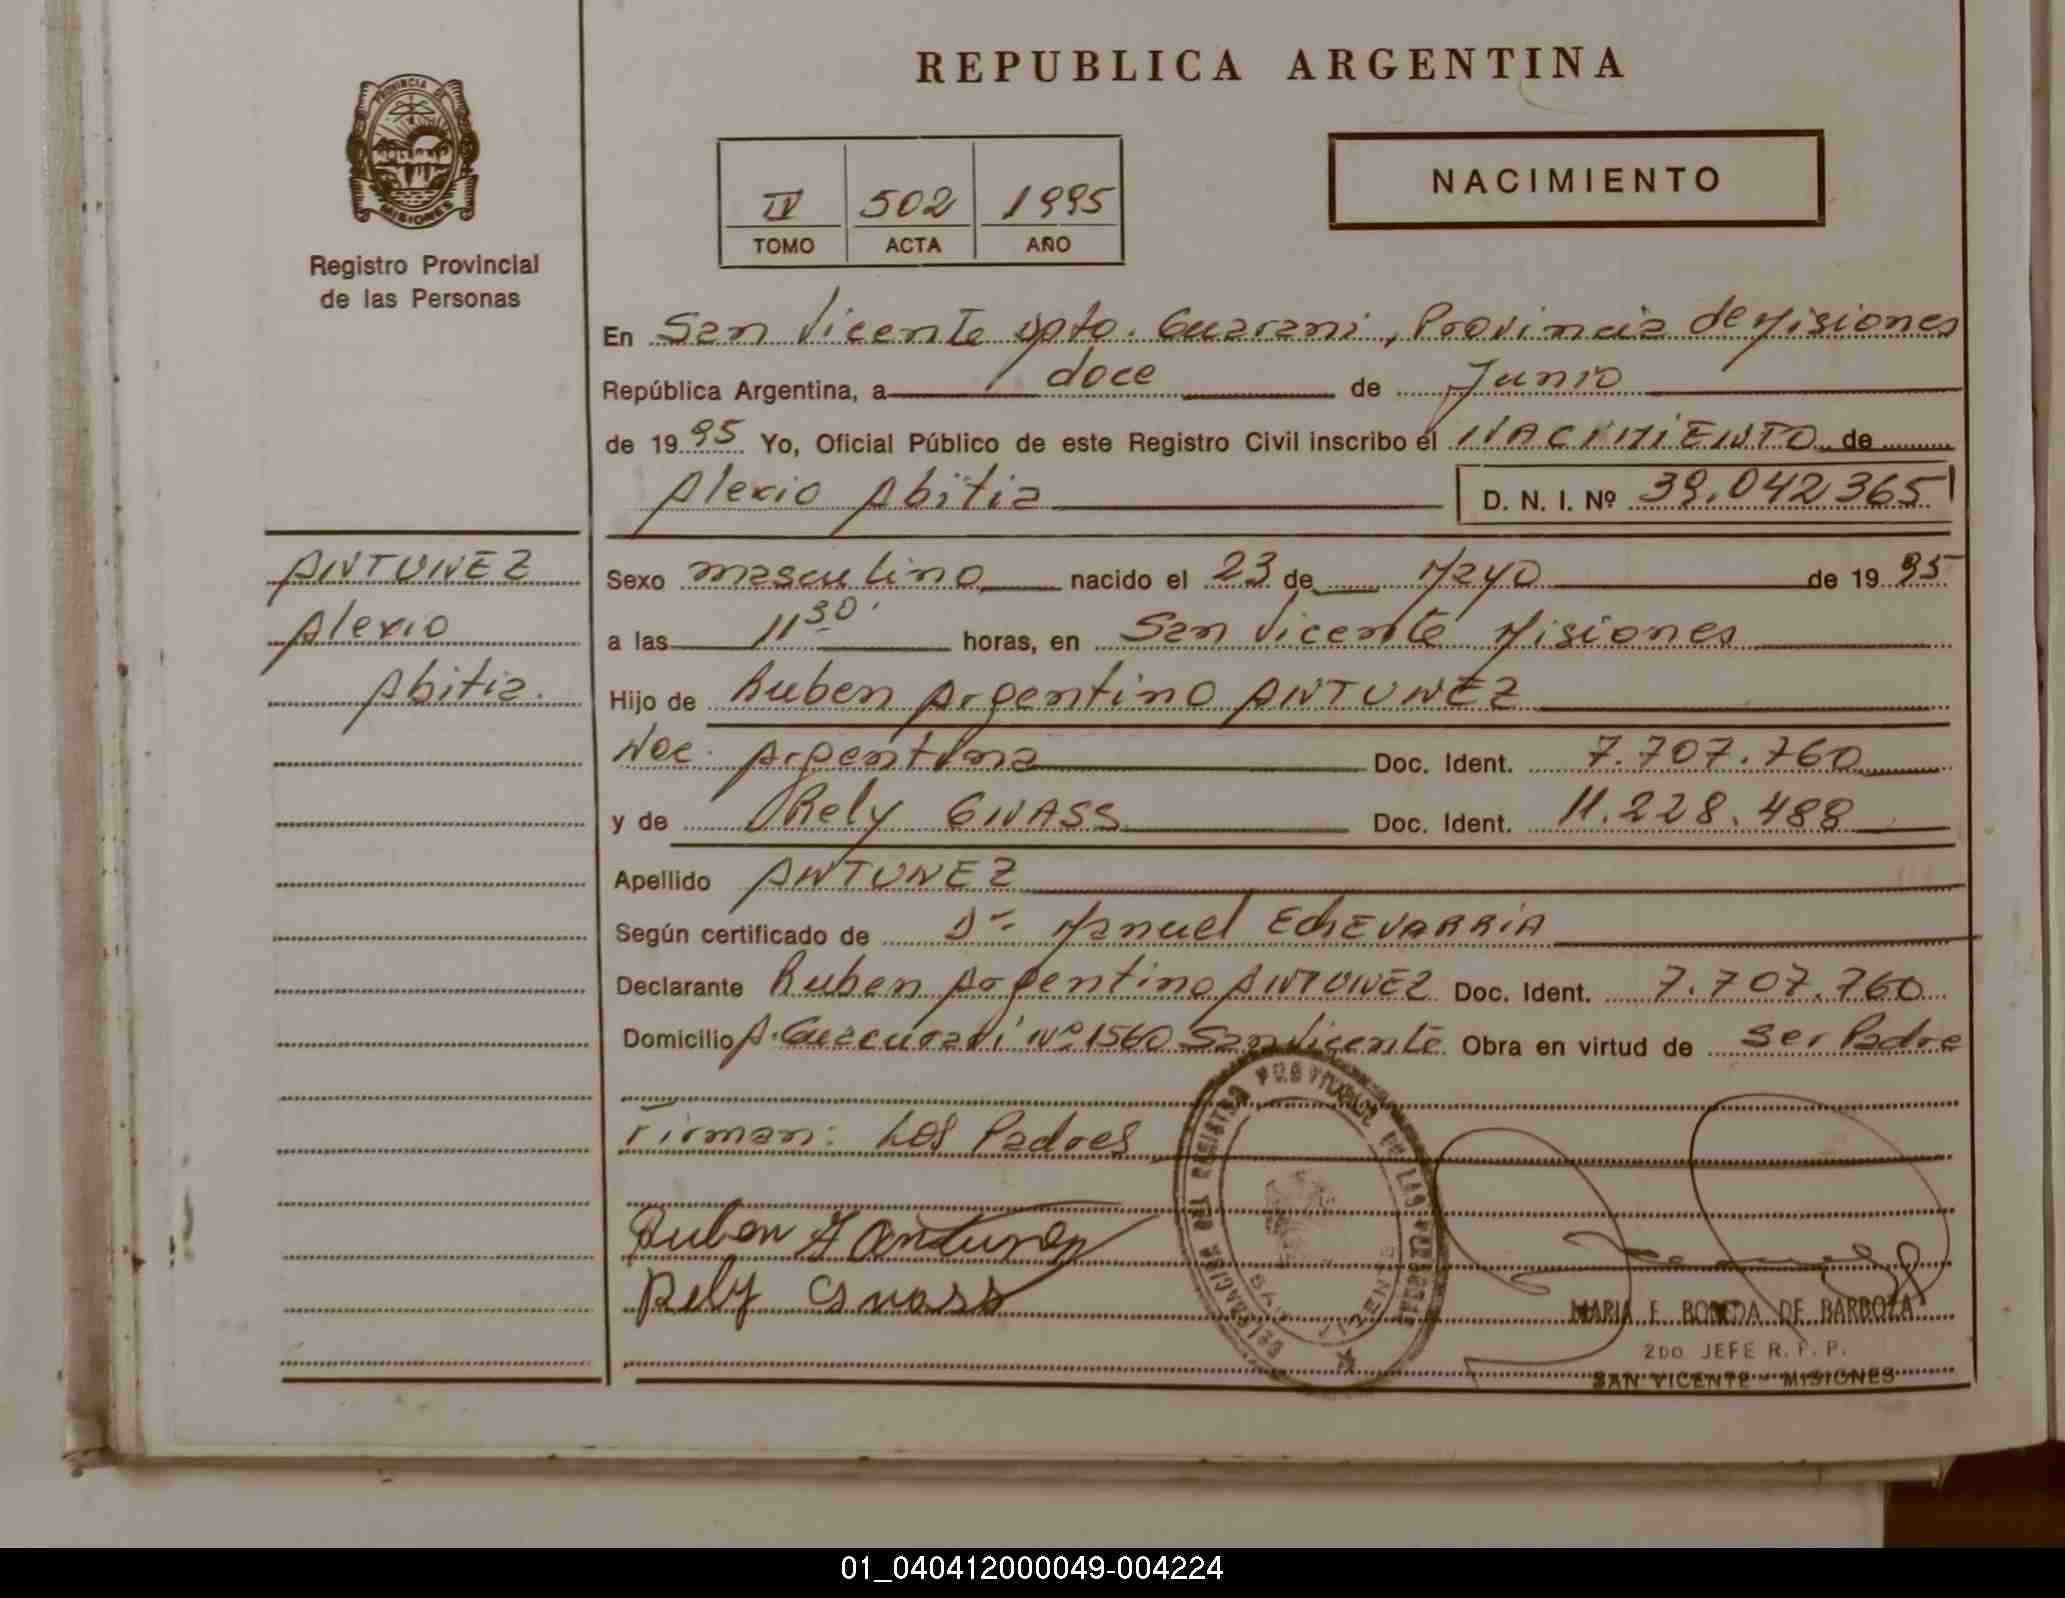 REPUBLICA ARGENTINA
PROVINCIA DE
MISIONES
Registro Provincial
de las Personas
IV 502 1995
TOMO ACTA AÑO
NACIMIENTO
En San Vicente Dpto. Guarani, Provincia de Misiones
República Argentina, a doce de Junio
de 1995 Yo, Oficial Público de este Registro Civil inscribo el NACIMIENTO de
Alexio Abitia D. N. I. Nº 39.042365
ANTUNEZ
Alexio
Abitia.
Sexo masculino nacido el 23 de Mayo de 1995
a las 11 30' horas, en San Vicente Misiones
Hijo de Ruben Argentino ANTUNEZ
Nac. Argentina Doc. Ident. 7.707.760
y de Rely GNASS Doc. Ident. 11.228.488
Apellido ANTUNEZ
Según certificado de Dr. Manuel ECHEVARRIA
Declarante Ruben Argentino ANTUNEZ Doc. Ident. 7.707.760
Domicilio A. Guacurari Nº 1560 San Vicente Obra en virtud de ser Padre
Firman: Los Padres
Ruben A Antunez
Rely Gnass
DELEGACION DEL REGISTRO PROVINCIAL DE LAS PERSONAS
SAN VICENTE
MARIA E. DE BARBOZA
2DO JEFE R. P. P.
SAN VICENTE - MISIONES
01_040412000049-004224